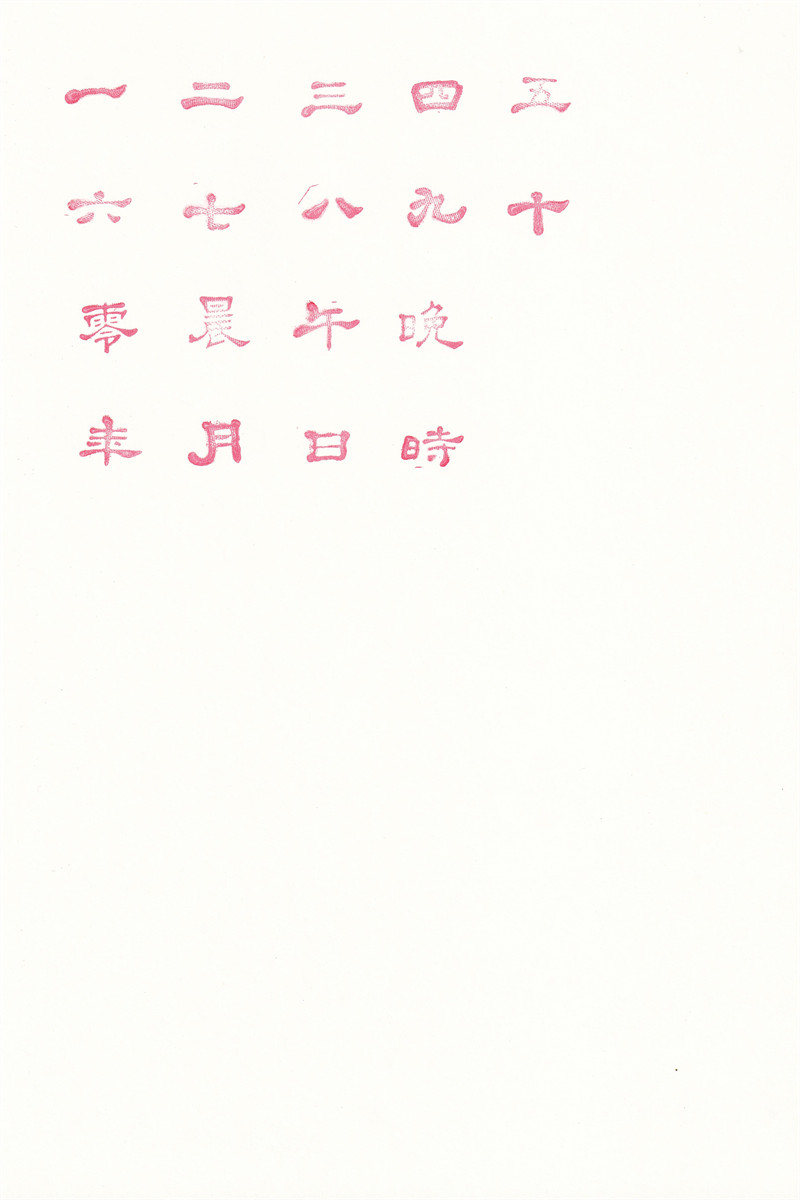 一 二 三 四 五
六 七 八 九 十
零 晨 午 晚
年 月 日 時